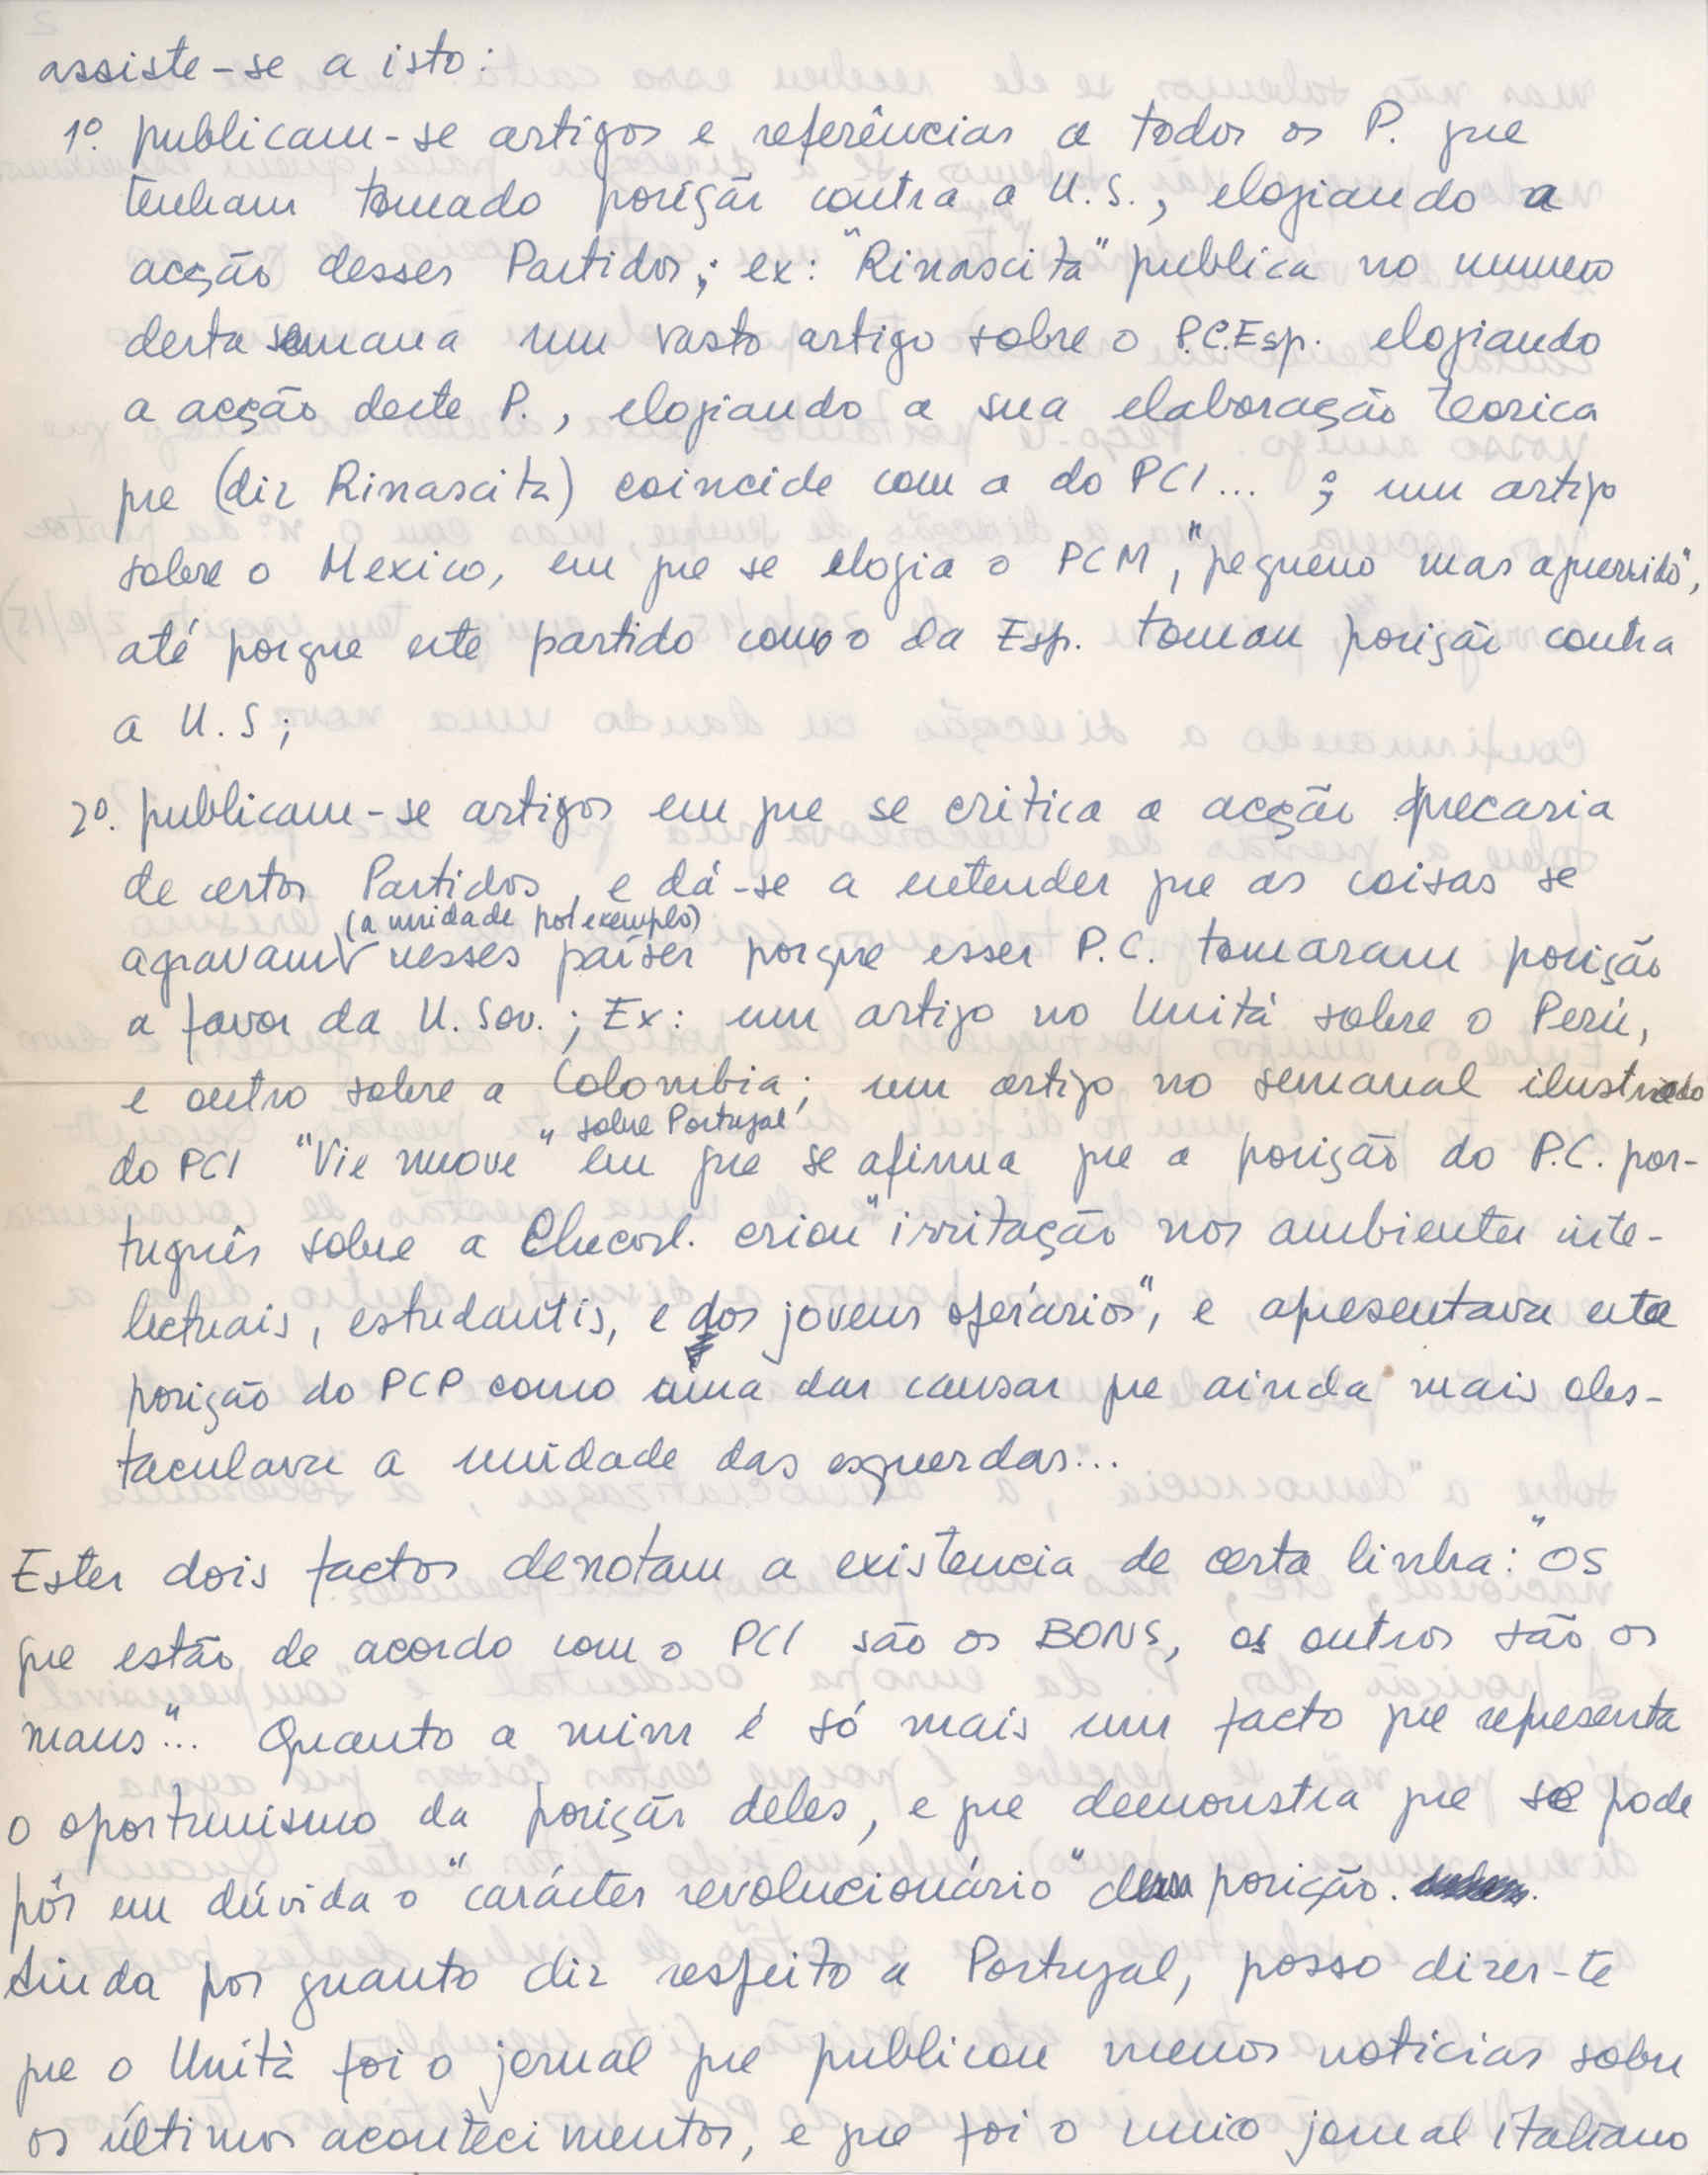 assiste-se a isto:
1º. publicam-se artigos e referências a todos os P. que
tenham tomado posição contra a U.S., elogiando a
acção desses Partidos; ex: "Rinascita" publica no numero
desta semana um vasto artigo sobre o P.C.Esp. elogiando
a acção deste P., elogiando a sua elaboração teorica
que (diz Rinascita) coincide com a do PCI... ; um artigo
sobre o Mexico, em que se elogia o PCM, "pequeno mas aguerrido",
até porque este partido como o da Esp. tomou posição contra
a U.S;
2º. publicam-se artigos em que se critica a acção precaria
de certos Partidos, e dá-se a entender que as coisas se
(a unidade por exemplo)
agravam nesses países porque esses P.C. tomaram posição
a favor da U. Sov.; Ex: um artigo no Unitá sobre o Perú,
e outro sobre a Colombia; um artigo no semanal ilustrado
sobre Portugal
do PCI "Vie nuove" em que se afirma que a posição do P.C. por-
tuguês sobre a Checosl. criou "irritação nos ambientes inte-
lectuais, estudantis, e dos jovens operários", e apresentava esta
posição do PCP como uma das causas que ainda mais obs-
taculava a unidade das esquerdas...
Estes dois factos denotam a existencia de certa linha: "os
que estão de acordo com o PCI são os BONS, os outros são os
maus"... Quanto a mim é só mais um facto que representa
o oportunismo da posição deles, e que demonstra que se pode
pôr em dúvida o "carácter revolucionário" dessa posição.
Ainda por quanto diz respeito a Portugal, posso dizer-te
que o Unità foi o jornal que publicou menos noticias sobre
os últimos acontecimentos, e que foi o unico jornal italiano